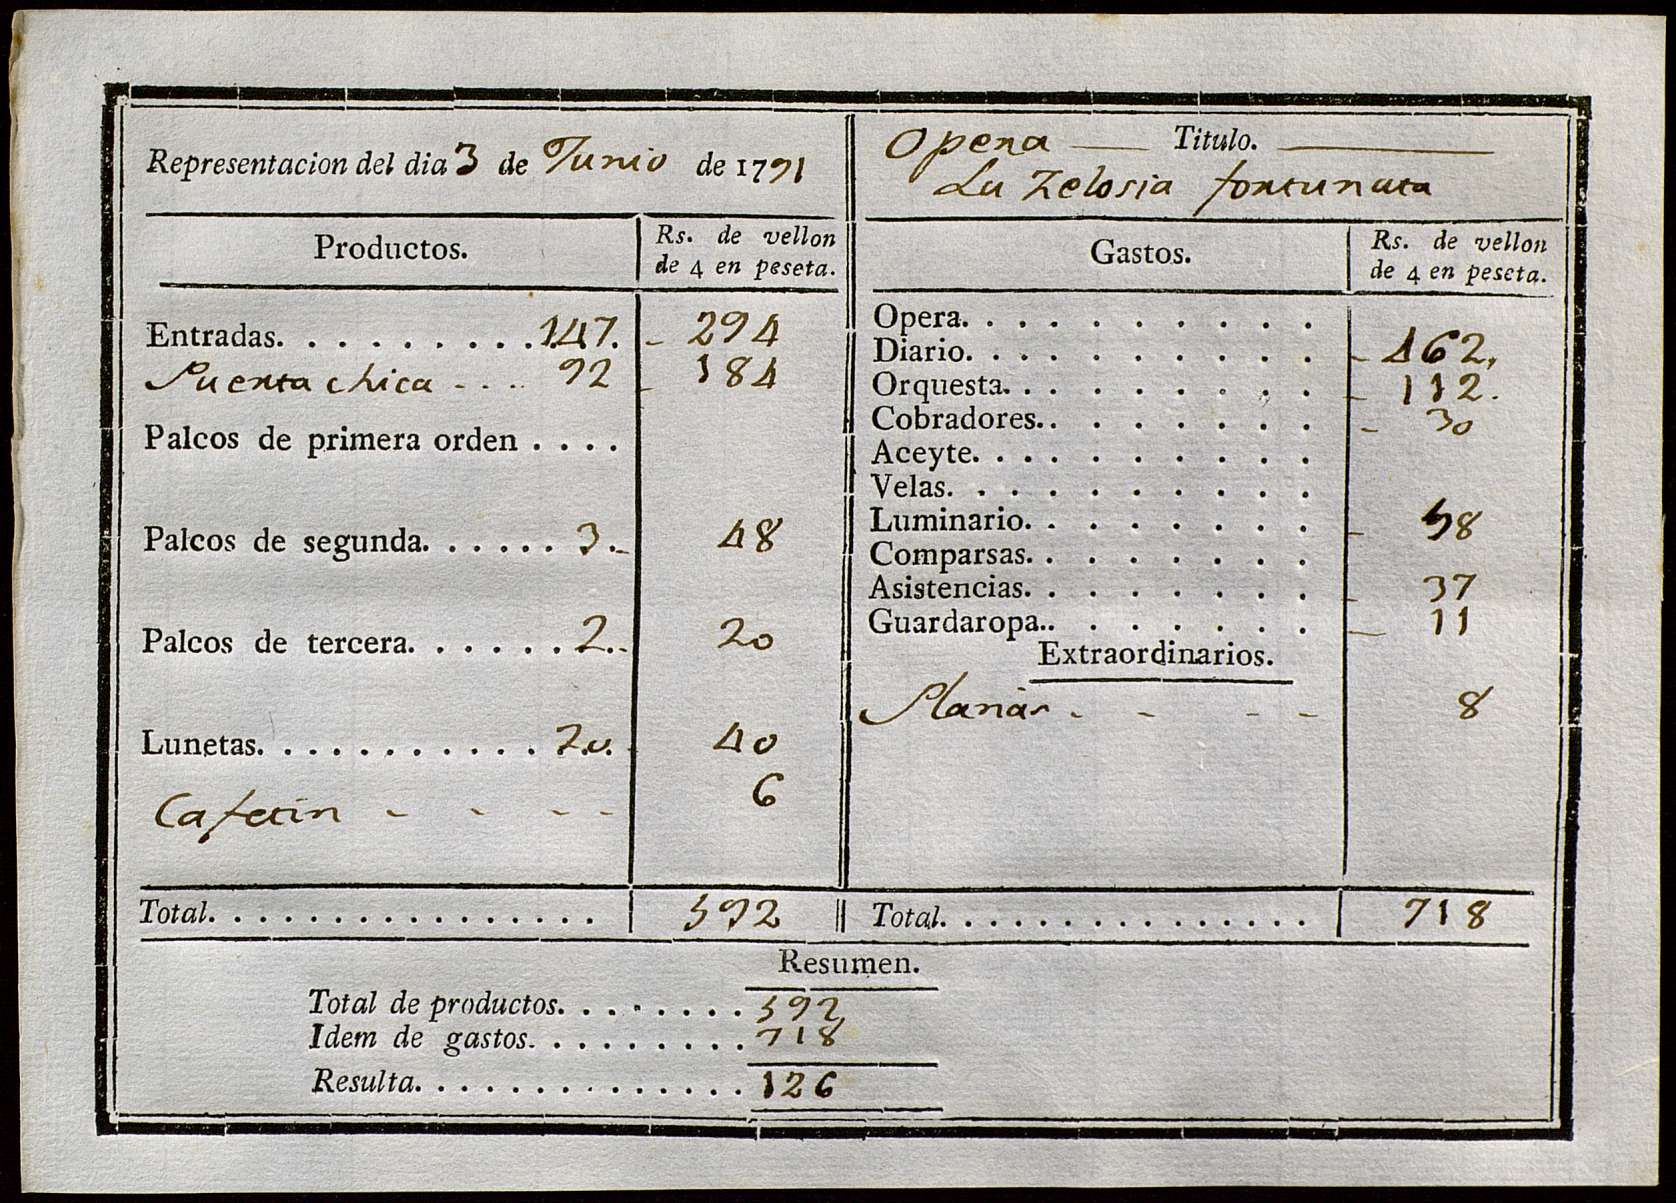 Representacion del dia 3 de Junio de 1791
Opera — Titulo. —
La Zelosia fortunata
Productos.
Rs. de vellon
de 4 en peseta.
Entradas. . . . . . . . . . 147. - 294
Puerta chica - . . . 92 - 184
Palcos de primera orden . . . .
Palcos de segunda. . . . . . 3. - 48
Palcos de tercera. . . . . . 2. - 20
Lunetas. . . . . . . . . . . . 20. - 40
Cafetin - - - - 6
Total. . . . . . . . . . . . . . . . 592
Gastos.
Rs. de vellon
de 4 en peseta.
Opera. . . . . . . . . . .
Diario. . . . . . . . . . . - 462.
Orquesta. . . . . . . . . - 112.
Cobradores.. . . . . . . - 30
Aceyte. . . . . . . . . . .
Velas. . . . . . . . . . .
Luminario. . . . . . . . - 58
Comparsas. . . . . . . .
Asistencias. . . . . . . . - 37
Guardaropa.. . . . . . . - 11
Extraordinarios.
- - - - 8
Total. . . . . . . . . . . . . . . . 718
Resumen.
Total de productos. . . . . . . . 592
Idem de gastos. . . . . . . . . 718
Resulta. . . . . . . . . . . . . . . 126